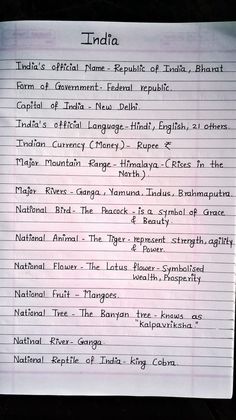 India
India's official Name - Republic of India, Bharat
Form of Government - Federal republic.
Capital of India - New Delhi.
India's official Language - Hindi, English, 21 others.
Indian Currency (Money) - Rupee ₹
Major Mountain Range - Himalaya - (Rises in the
North)
Major Rivers - Ganga, Yamuna, Indus, Brahmaputra.
National Bird - The Peacock - is a symbol of Grace
& Beauty.
National Animal - The Tiger - represent strength, agility
& Power.
National Flower - The Lotus flower - Symbolised
wealth, Prosperity
National Fruit - Mangoes.
National Tree - The Banyan tree - knows as
"Kalpavriksha"
Natinal River - Ganga
National Reptile of India - king Cobra.